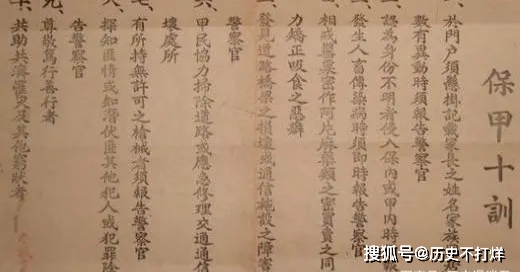 保甲十訓
一、於門戶須懸掛記載家長之姓名家族
數有異動時須報告警察官
認為身份不明者侵入保內或甲內時
發生人畜傳染病時須即時報告警察官
相戒罌粟密作阿片麻藥類之密買賣之同
力矯正吸食之惡癖
發見道路橋梁之損壞或通信施設之障害
警察官
甲民協力掃除道路或應急修理交通通信
壞處所
七、有所持無許可之槍械者須報告警察官
八、探知匪情或知潛伏匪其他犯人或犯罪
告警察官
九、尊敬篤行善行者
十、共助共濟罹災及其他窮狀者
搜狐号@历史不打烊